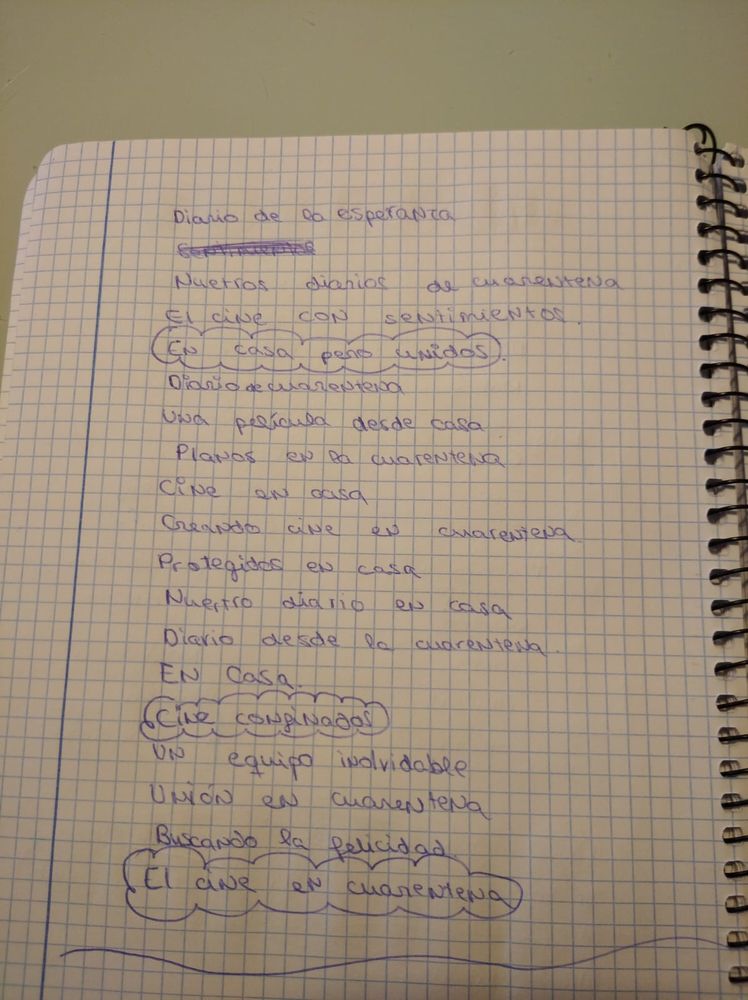 Diario de la esperanza
Nuestros diarios de cuarentena
El cine con sentimientos.
En casa pero unidos.
Diario de cuarentena
Una película desde casa
Planos en la cuarentena
Cine en casa
Creando cine en cuarentena
Protegidos en casa
Nuestro diario en casa
Diario desde la cuarentena.
EN Casa.
Cine confinados
Un equipo inolvidable
Unión en cuarentena
Buscando la felicidad
El cine en cuarentena